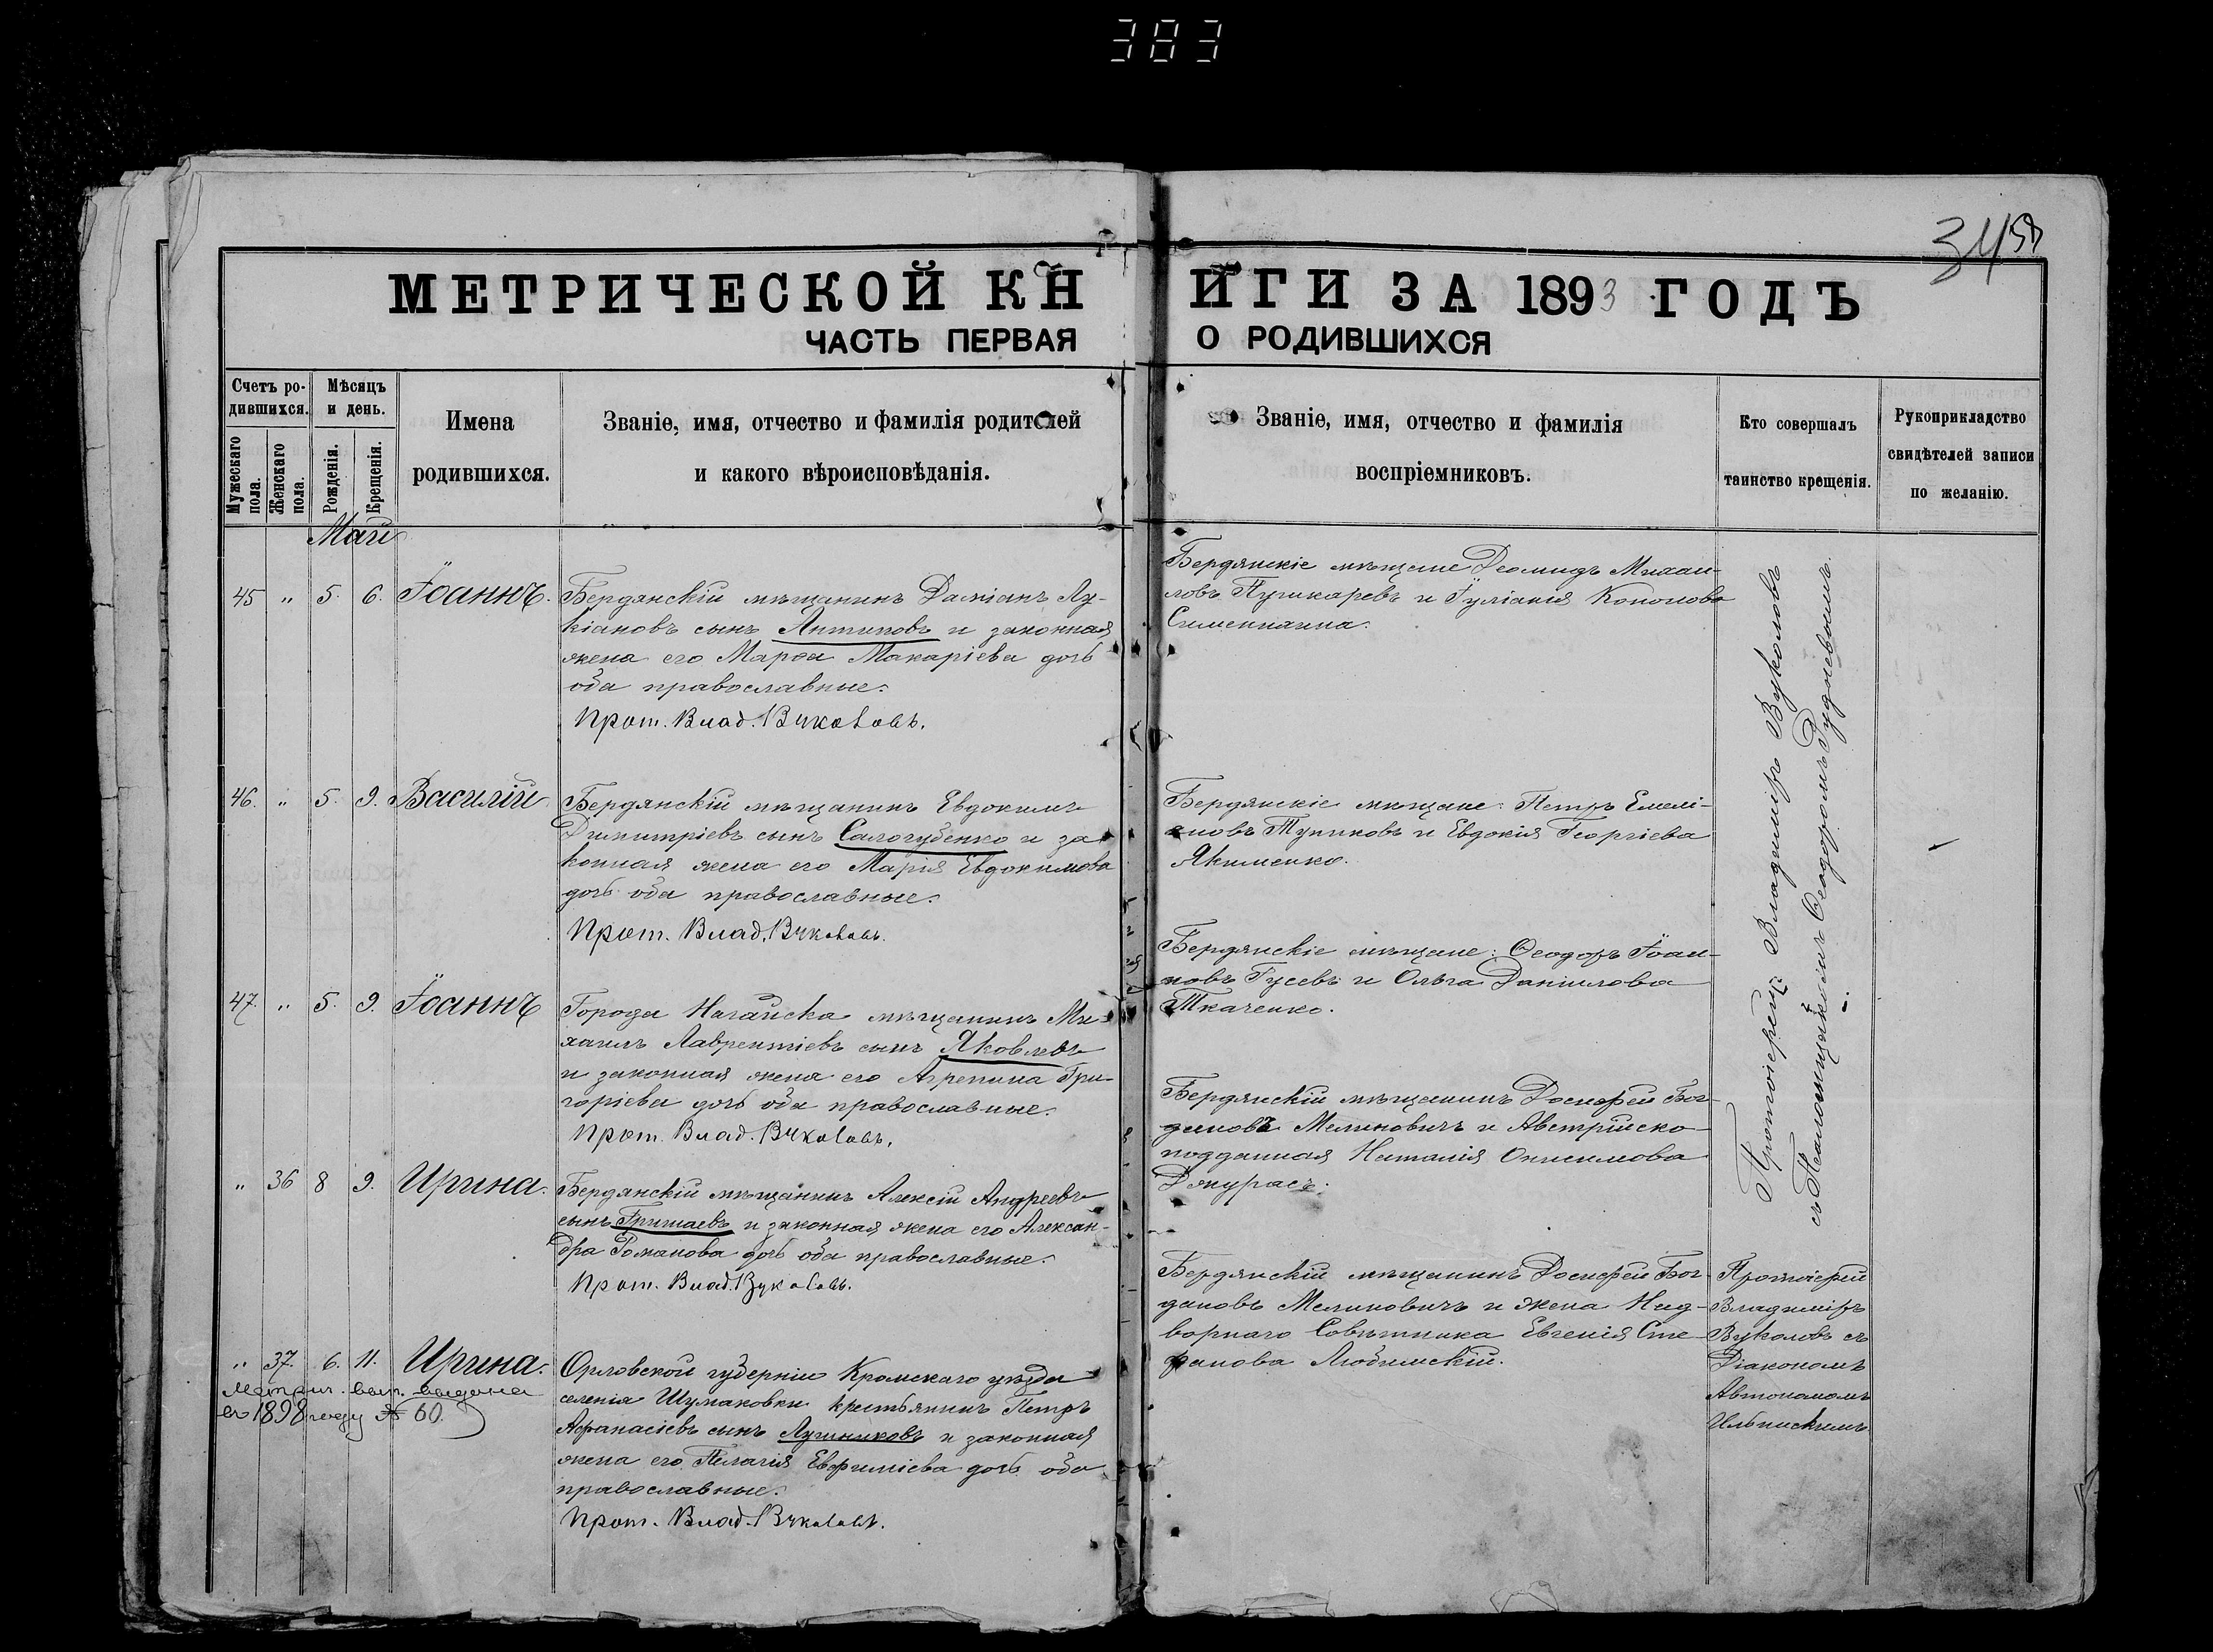 383
345
МЕТРИЧЕСКОЙ КНИГИ ЗА 1893 ГОДЪ
ЧАСТЬ ПЕРВАЯ О РОДИВШИХСЯ
Счетъ ро-
дившихся.
Мужескаго
пола.
Женскаго
пола.
Мѣсяцъ
и день.
Рожденія.
Крещенія.
Имена
родившихся.
Званіе, имя, отчество и фамилія родителей
и какого вѣроисповѣданія.
Званіе, имя, отчество и фамилія
воспріемниковъ.
Кто совершалъ
таинство крещенія.
Рукоприкладство
свидѣтелей записи
по желанію.
Май
45 " 5. 6. Іоаннъ.
Бердянскій мѣщанинъ Даміанъ Лу-
кіановъ сынъ Антиповъ и законная
жена его Марѳа Макаріева дочь
оба православные.
Прот. Влад. Вуколовъ.
Бердянскіе мѣщане Деомидъ Михаи-
ловъ Пушкаревъ и Іуліанія Кононова
46. " 5. 9. Василій
Бердянскій мѣщанинъ Евдокимъ
Димитріевъ сынъ Салогубенко и за
конная жена его Марія Евдокимова
дочь оба православные.
Прот. Влад. Вуколовъ.
Бердянскіе мѣщане: Петръ Емелі-
ановъ Тупиковъ и Евдокія Георгіева
Якименко.
47. " 5. 9. Іоаннъ
Города Ногайска мѣщанинъ Ми-
хаилъ Лаврентіевъ сынъ Яковлевъ
и законная жена его Агрепина Гри-
горіева дочь оба православные.
Прот. Влад. Вуколовъ.
Бердянскіе мѣщане: Ѳеодоръ Іоан-
новъ Гусевъ и Ольга Даніилова
Ткаченко.
" 36 8 9. Ирина.
Бердянскій мѣщанинъ Алексій Андреевъ
сынъ Гришаевъ и законная жена его Алексан-
дра Романова дочь оба православные.
Прот. Влад. Вуколовъ.
Бердянскій мѣщанинъ Досифей Бог-
дановъ Мелиновичъ и Австрійско-
подданная Наталія Онисимова
Докурасъ.
Протоіерей Владиміръ Вуколовъ
съ Псаломщикомъ Ѳеодоромъ Рудневымъ.
" 37. 6. 11. Ирина.
Метрич. вып. выдана
въ 1898 году № 60.
Орловской губерніи Кромскаго уѣзда
селенія Шумаковки крестьянинъ Петръ
Аѳанасіевъ сынъ Лушниковъ и законная
жена его Пелагія Евфиміева дочь оба
православные.
Прот. Влад. Вуколовъ.
Бердянскій мѣщанинъ Досифей Бог-
дановъ Мелиновичъ и жена Над-
ворнаго Совѣтника Евгенія Сте
фанова
Протоіерей
Владиміръ
Вуколовъ съ
Діакономъ
Автономомъ
Ильинскимъ